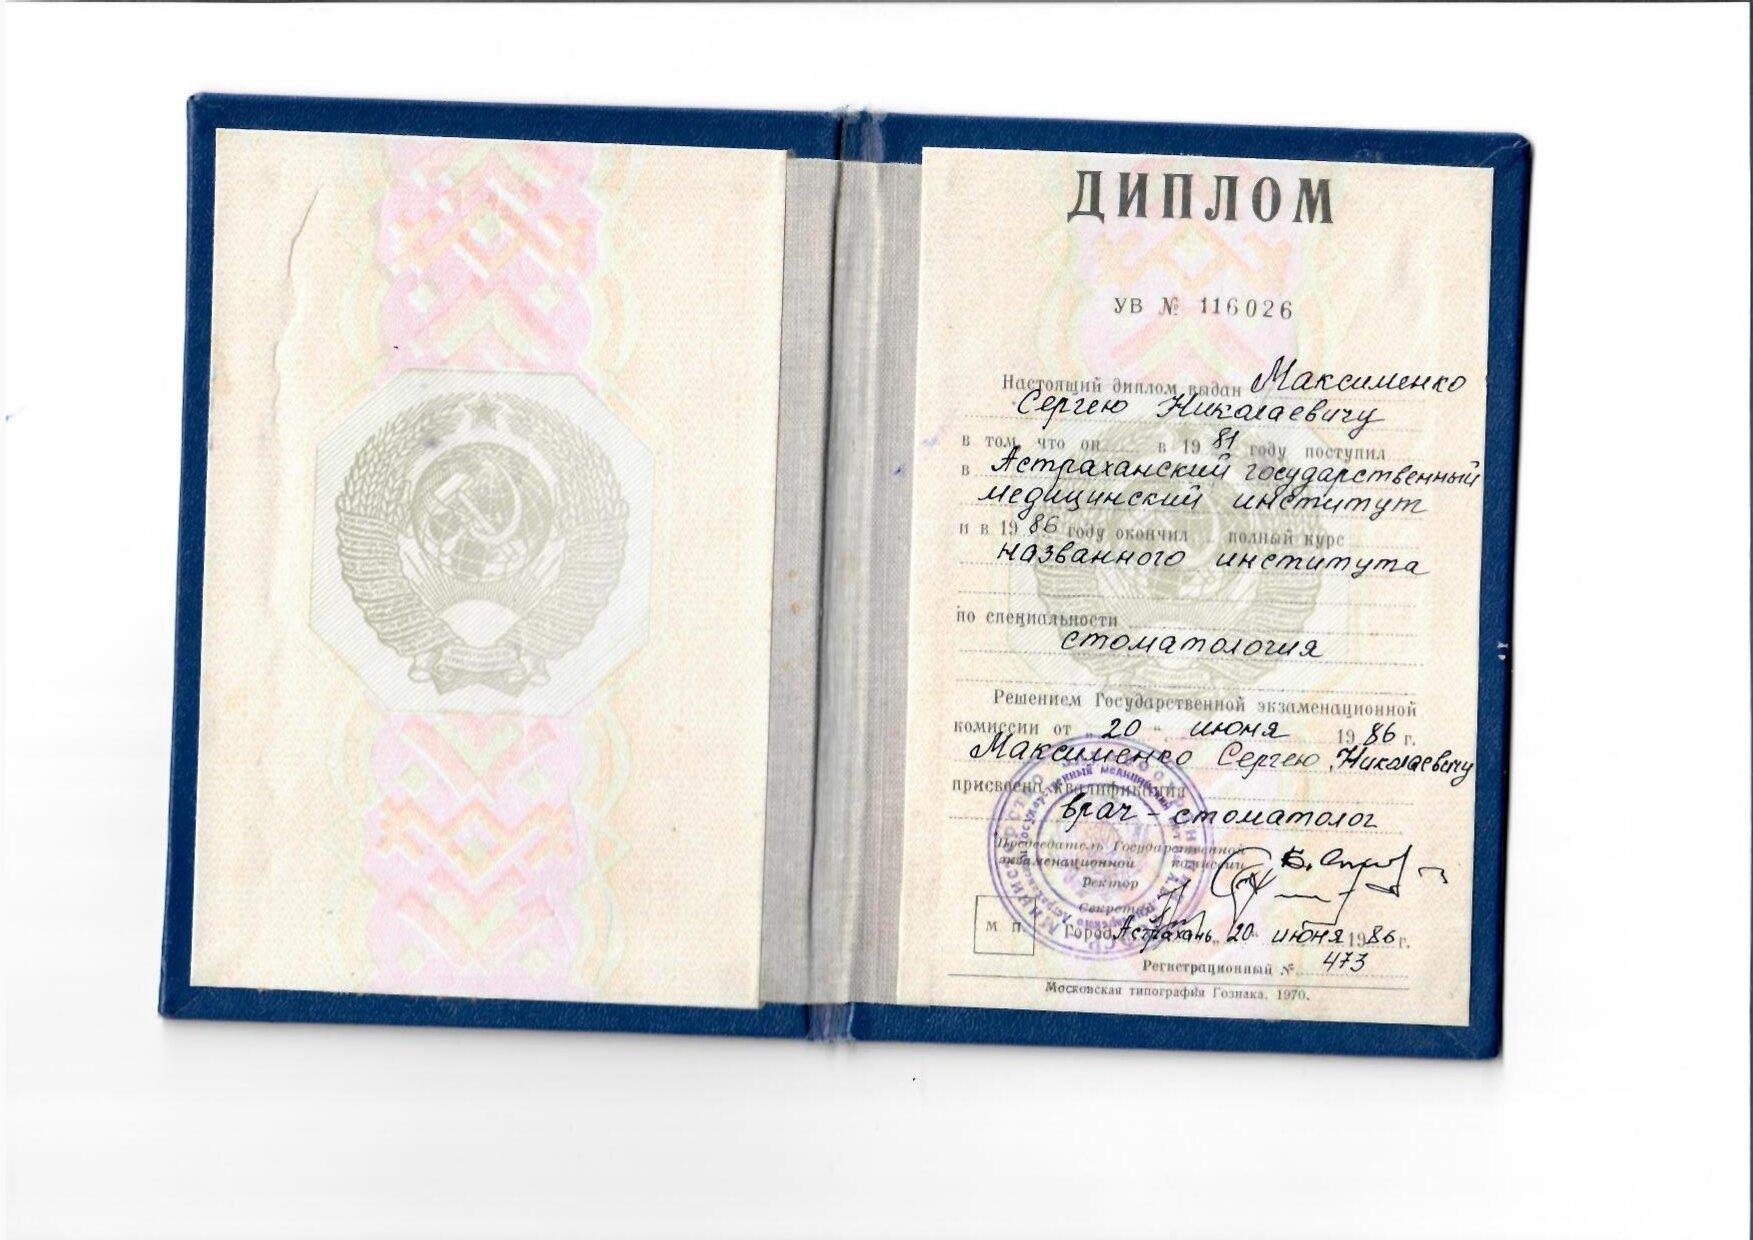 ДИПЛОМ
УВ № 116026
Настоящий диплом выдан Максименко
Сергею Николаевичу
в том, что он в 19 81 году поступил
в Астраханский государственный
медицинский институт
и в 19 86 году окончил полный курс
названного института
по специальности
стоматология
Решением Государственной экзаменационной
комиссии от „ 20 “ июня 19 86 г.
Максименко Сергею Николаевичу
присвоена квалификация
врач - стоматолог
Председатель Государственной
экзаменационной комиссии
Ректор
Секретарь
М П. Город Астрахань „ 20 “ июня 1986 г.
Регистрационный № 473
Московская типография Гознака. 1970.